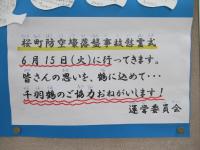 桜町防空壕落盤事故慰霊式
6月15日(火)に行ってきます。
皆さんの思いを、鶴に込めて・・・
千羽鶴のご協力おねがいします!
運営委員会